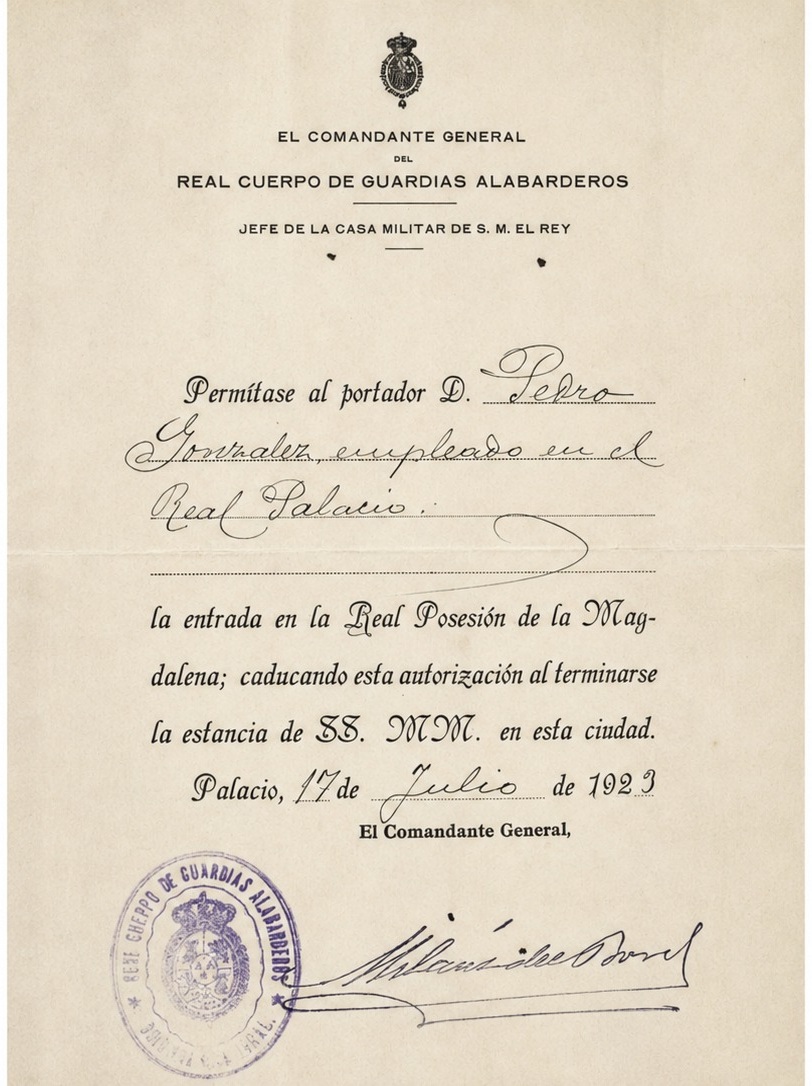 EL COMANDANTE GENERAL
DEL
REAL CUERPO DE GUARDIAS ALABARDEROS
JEFE DE LA CASA MILITAR DE S. M. EL REY
Permítase al portador D. Pedro
Gonzalez, empleado en el
Real Palacio.
la entrada en la Real Posesión de la Mag-
dalena; caducando esta autorización al terminarse
la estancia de SS. MM. en esta ciudad.
Palacio, 17 de Julio de 1923
El Comandante General,
Milans del Bosch
DE GUARDIAS ALABARDEROS